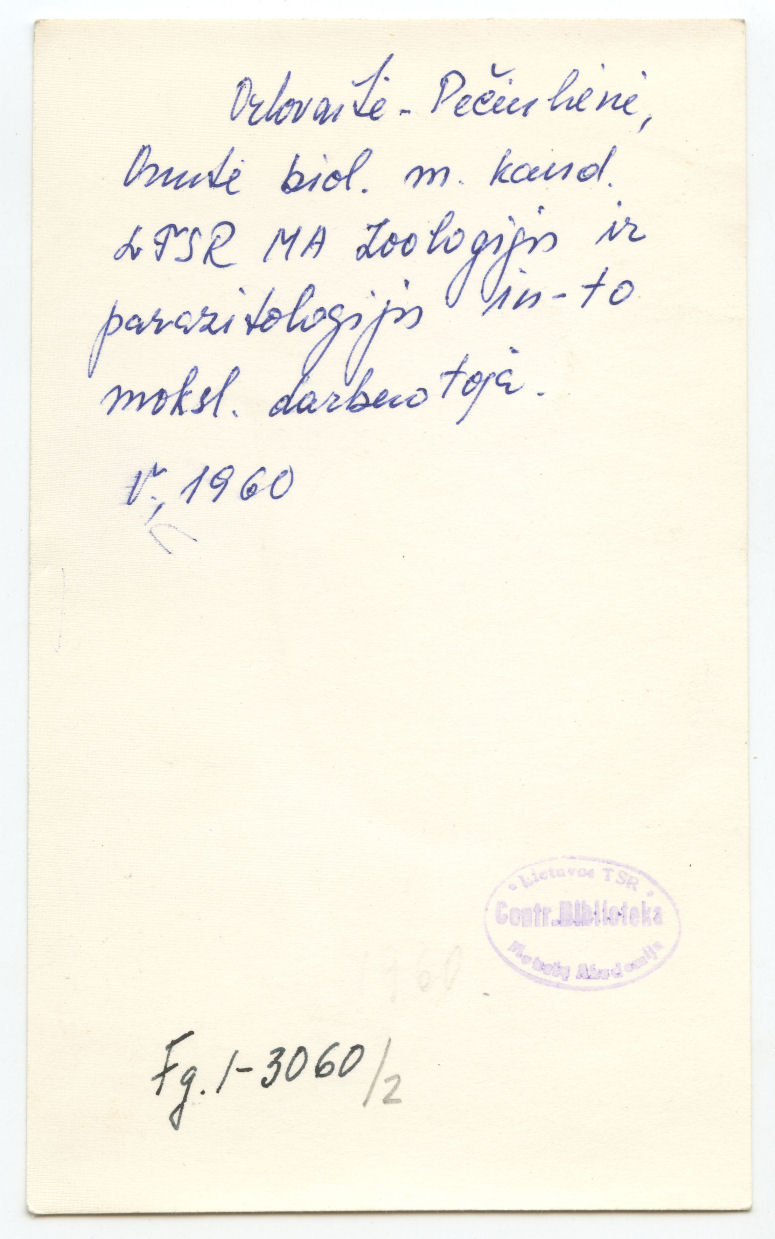 Orlovaitė - Pečiulienė,
Onutė biol. m. kand.
LTSR MA Zoologijos ir
parazitologijos in-to
moksl. darbuotoja.
V., 1960
Lietuvos TSR
Centr. Biblioteka
Mokslų Akademija
1960
Fg. 1-3060/2